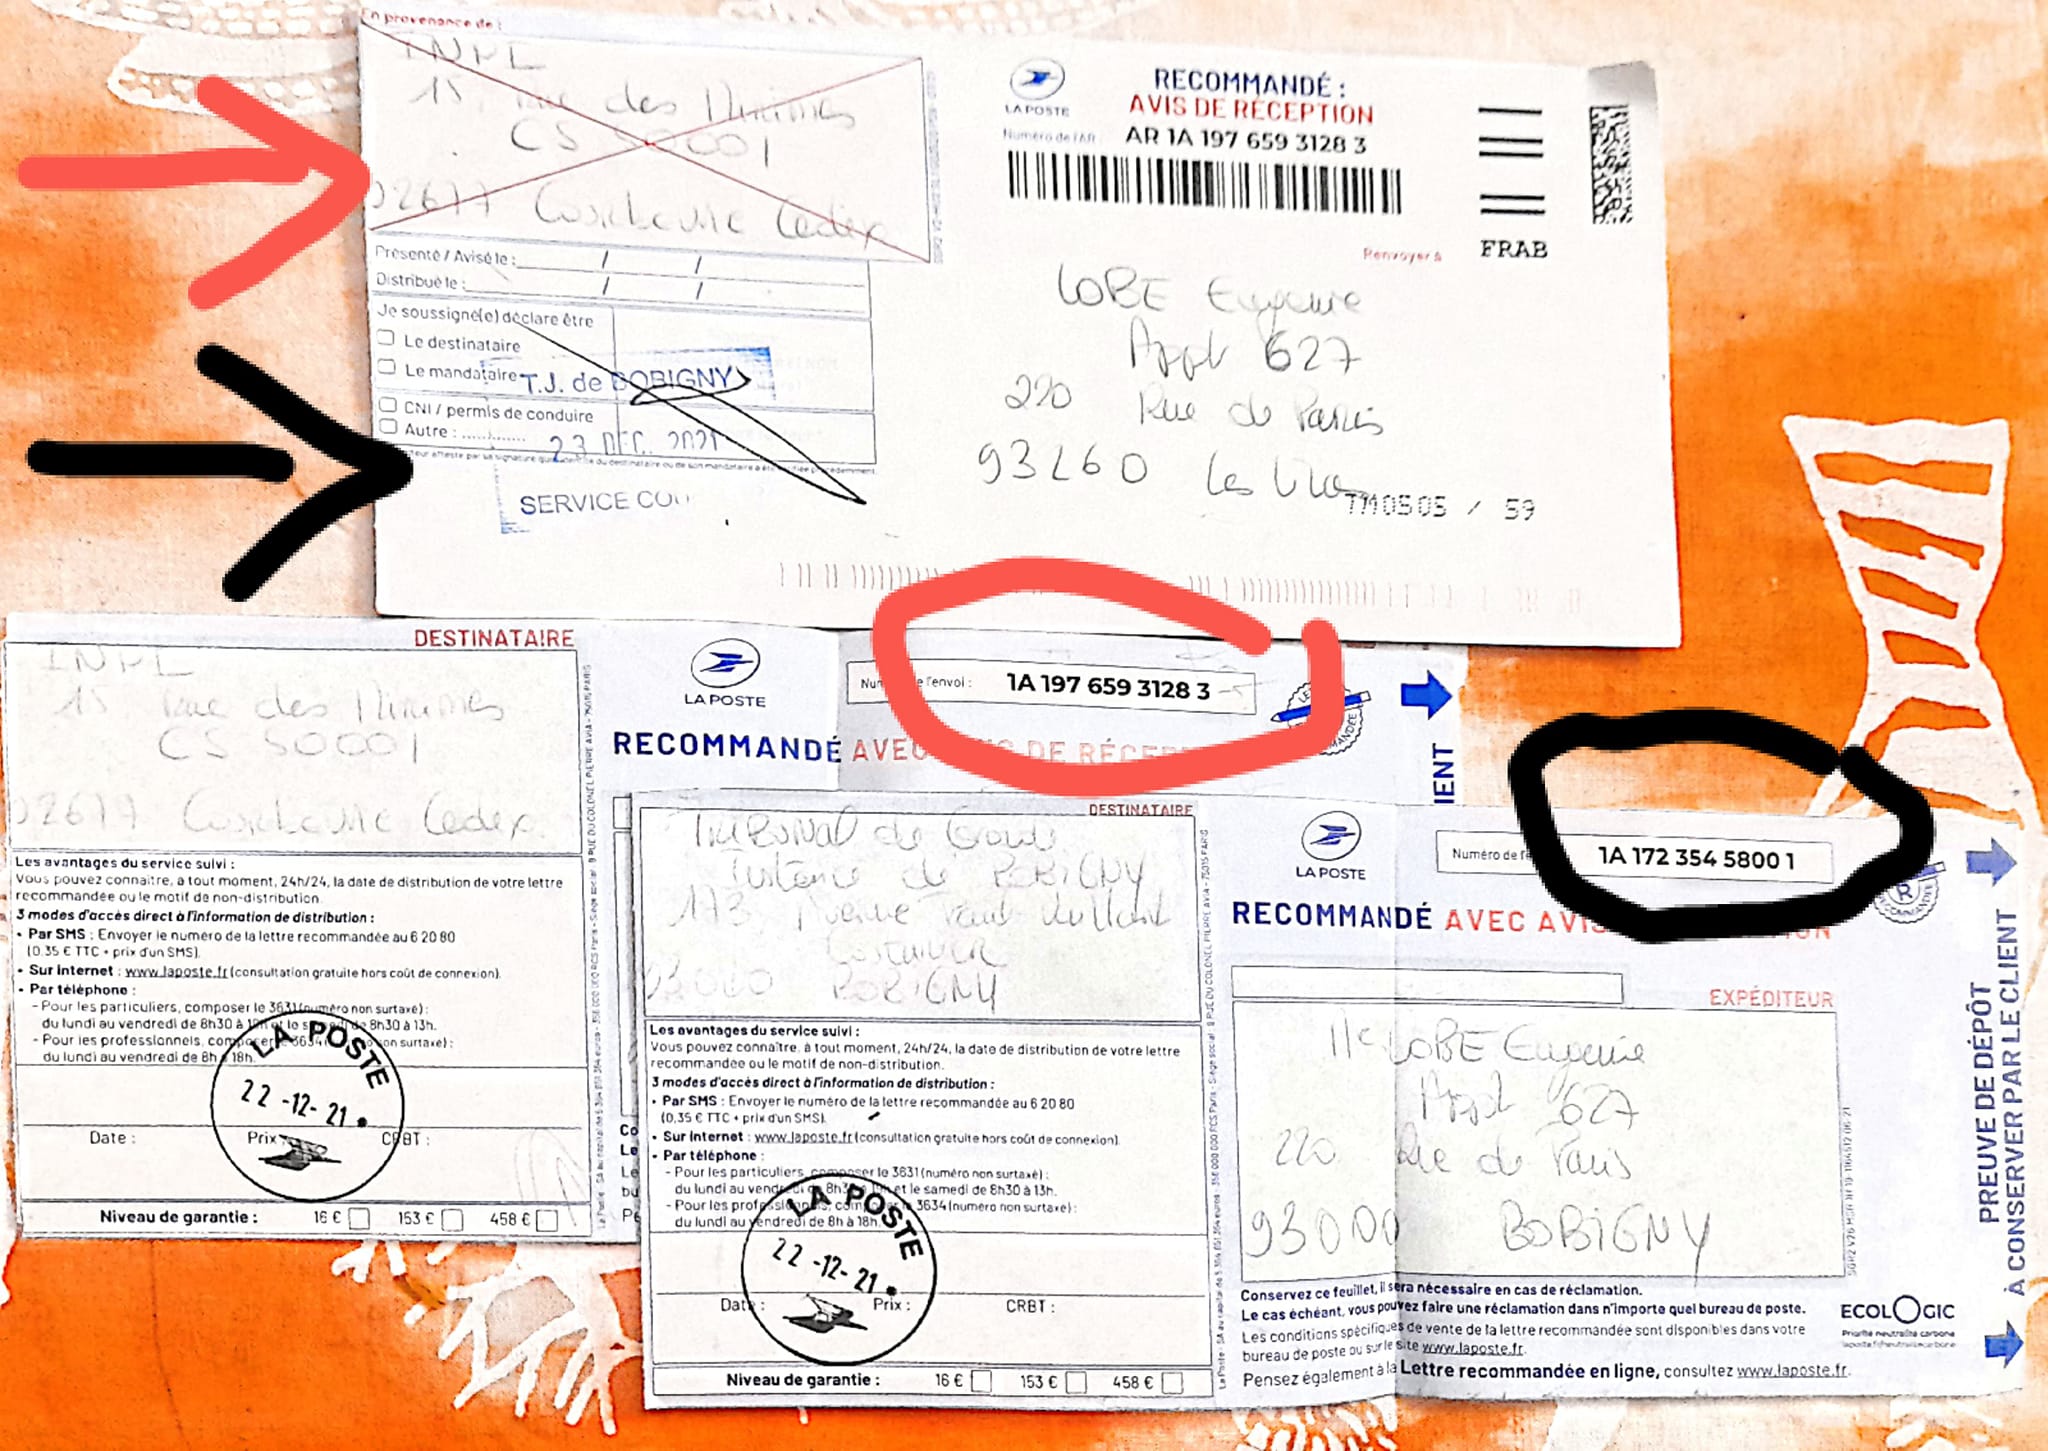 En provenance de :
INPL
15, rue des Minimes
CS 50001
92677 Courbevoie Cedex
Présenté / Avisé le : / /
Distribué le : / /
Je soussigné(e) déclare être
Le destinataire
Le mandataire
CNI / permis de conduire
Autre : ............
T.J. de BOBIGNY
23 DEC. 2021
SERVICE COU
LA POSTE
RECOMMANDÉ :
AVIS DE RÉCEPTION
Numéro de l'AR : AR 1A 197 659 3128 3
Renvoyer à
FRAB
LOBE Eugenie
Appt 627
220 Rue de Paris
93260 Les Lilas
TM0505 / 59
DESTINATAIRE
INPL
15 rue des Minimes
CS 50001
92677 Courbevoie Cedex
Les avantages du service suivi :
Vous pouvez connaître, à tout moment, 24h/24, la date de distribution de votre lettre
recommandée ou le motif de non-distribution.
3 modes d'accès direct à l'information de distribution :
• Par SMS : Envoyer le numéro de la lettre recommandée au 6 20 80
(0,35 € TTC + prix d'un SMS).
• Sur internet : www.laposte.fr (consultation gratuite hors coût de connexion).
• Par téléphone :
- Pour les particuliers, composer le 3631 (numéro non surtaxé) :
du lundi au vendredi de 8h30 à 19h et le samedi de 8h30 à 13h.
- Pour les professionnels, composer le 3634 (numéro non surtaxé) :
du lundi au vendredi de 8h à 18h.
LA POSTE
22-12-21
Date : Prix : CRBT :
Niveau de garantie : 16 € 153 € 458 €
LA POSTE
Numéro de l'envoi : 1A 197 659 3128 3
RECOMMANDÉ AVEC AVIS DE RÉCEPTION
DESTINATAIRE
Tribunal de Grande
Instance de BOBIGNY
173 Avenue Paul Vaillant
Couturier
93000 BOBIGNY
Les avantages du service suivi :
Vous pouvez connaître, à tout moment, 24h/24, la date de distribution de votre lettre
recommandée ou le motif de non-distribution.
3 modes d'accès direct à l'information de distribution :
• Par SMS : Envoyer le numéro de la lettre recommandée au 6 20 80
(0,35 € TTC + prix d'un SMS).
• Sur internet : www.laposte.fr (consultation gratuite hors coût de connexion).
• Par téléphone :
- Pour les particuliers, composer le 3631 (numéro non surtaxé) :
du lundi au vendredi de 8h30 et le samedi de 8h30 à 13h.
- Pour les professionnels, composer le 3634 (numéro non surtaxé) :
du lundi au vendredi de 8h à 18h.
LA POSTE
22-12-21
Date : Prix : CRBT :
Niveau de garantie : 16 € 153 € 458 €
LA POSTE
Numéro de l'e 1A 172 354 5800 1
RECOMMANDÉ AVEC AVIS DE RÉCEPTION
EXPÉDITEUR
LOBE Eugenie
Appt 627
220 Rue de Paris
93000 BOBIGNY
Conservez ce feuillet, il sera nécessaire en cas de réclamation.
Le cas échéant, vous pouvez faire une réclamation dans n'importe quel bureau de poste.
Les conditions spécifiques de vente de la lettre recommandée sont disponibles dans votre
bureau de poste ou sur le site www.laposte.fr.
Pensez également à la Lettre recommandée en ligne, consultez www.laposte.fr.
ECOLOGIC
Priorité neutralité carbone
PREUVE DE DÉPÔT
À CONSERVER PAR LE CLIENT